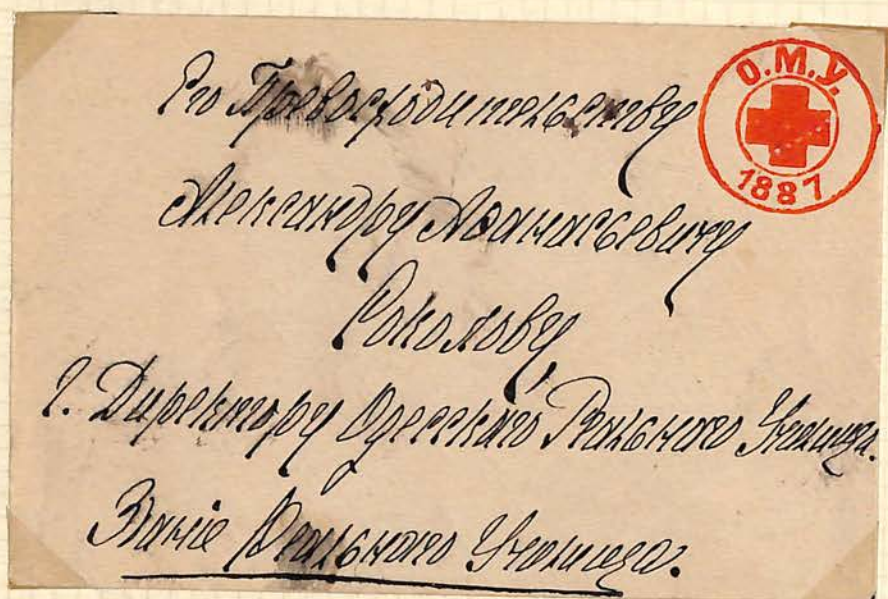 О.М.У.
1887
Его Превосходительству
Александру Афанасьевичу
Соколову,
г. Директору Одесскаго Реальнаго Училища.
Зданіе Реальнаго Училища.